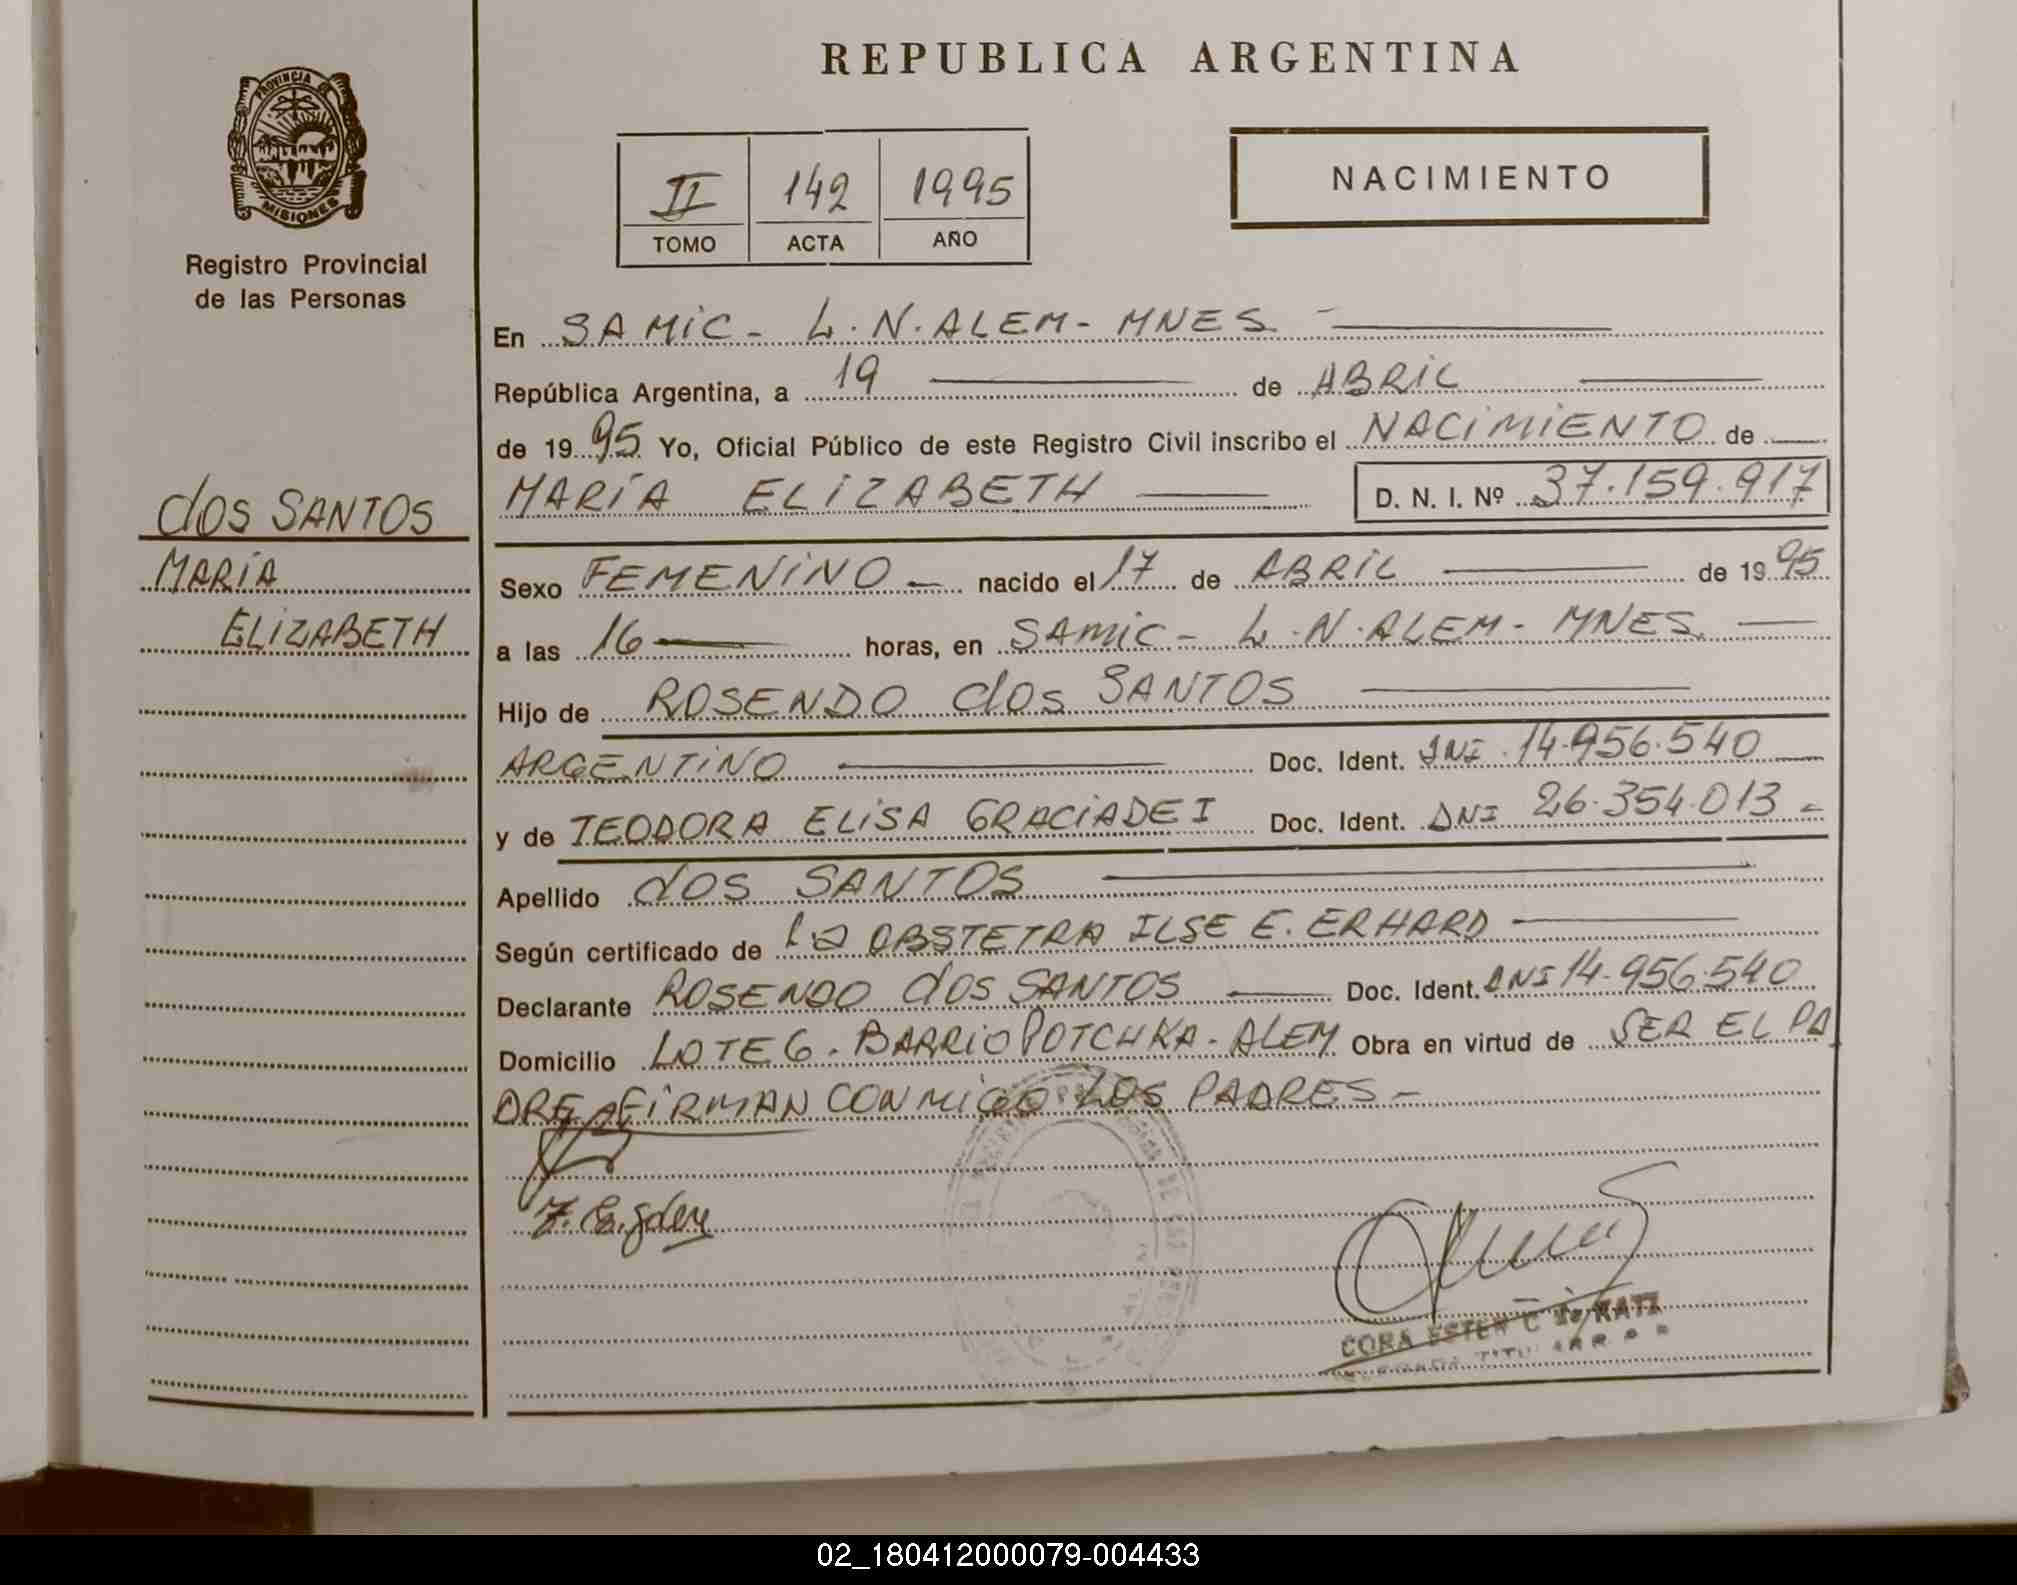 REPUBLICA ARGENTINA
PROVINCIA DE
MISIONES
Registro Provincial
de las Personas
II 142 1995
TOMO ACTA AÑO
NACIMIENTO
En SAMIC - L. N. ALEM - MNES -
República Argentina, a 19 de ABRIL
de 1995 Yo, Oficial Público de este Registro Civil inscribo el NACIMIENTO de
MARÍA ELIZABETH D. N. I. Nº 37.159.917
dos SANTOS
MARÍA
ELIZABETH
Sexo FEMENINO - nacido el 17 de ABRIL de 1995
a las 16 horas, en SAMIC - L. N. ALEM - MNES.
Hijo de ROSENDO dos SANTOS
ARGENTINO Doc. Ident. DNI 14.956.540
y de TEODORA ELISA GRACIADEI Doc. Ident. DNI 26.354.013 -
Apellido dos SANTOS
Según certificado de La OBSTETRA ILSE E. ERHARD
Declarante ROSENDO dos SANTOS Doc. Ident. DNI 14.956.540
Domicilio LOTE 6. BARRIO POTCHKA - ALEM Obra en virtud de SER EL PA
DRE FIRMAN CONMIGO LOS PADRES -
CORA ESTER C KATZ
02_180412000079-004433